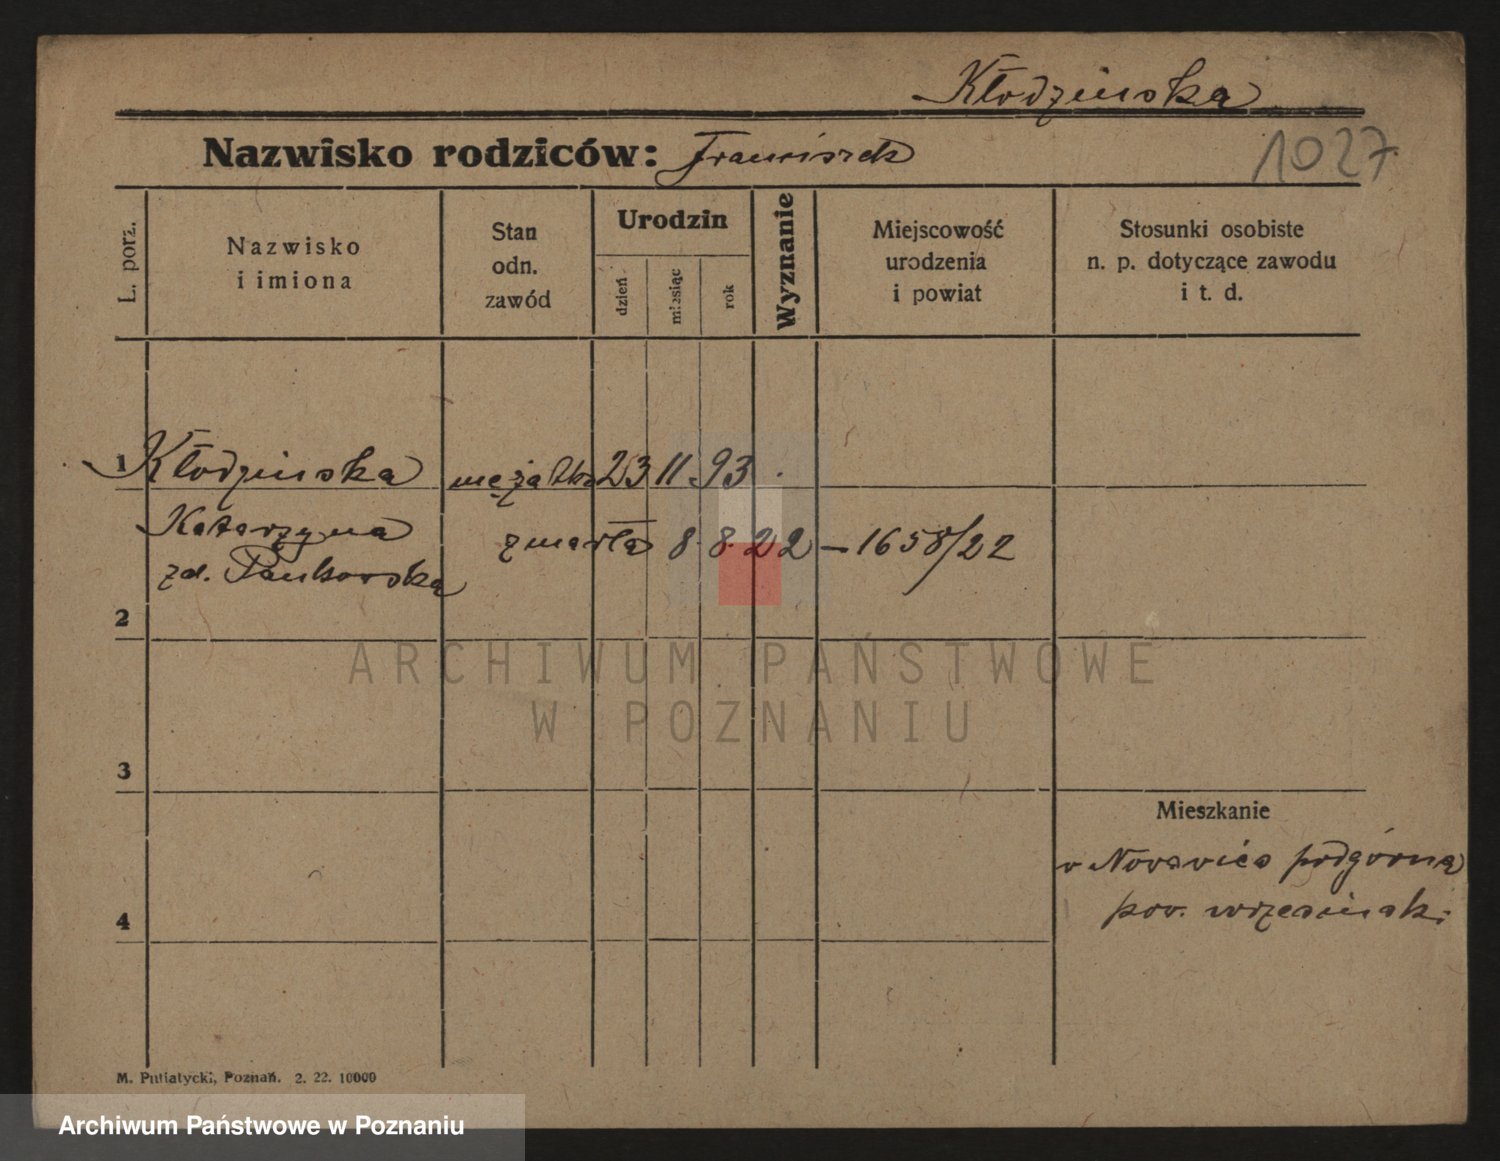 Kłodzinska
Nazwisko rodziców: Franciszek
1027
L. porz.
Nazwisko
i imiona
Stan
odn.
zawód
Urodzin
dzień
miesiąc
rok
Wyznanie
Miejscowość
urodzenia
i powiat
Stosunki osobiste
n. p. dotyczące zawodu
i t. d.
1 Kłodzinska mężatka 23 11 93
Katarzyna zmarła 8. 8. 22 – 1658/22
zd. Pankowska
2
ARCHIWUM PAŃSTWOWE
W POZNANIU
3
Mieszkanie
w Nowawieś podgórna
pow. wrzesinski
4
M. Putiatycki, Poznań. 2. 22. 10000
Archiwum Państwowe w Poznaniu